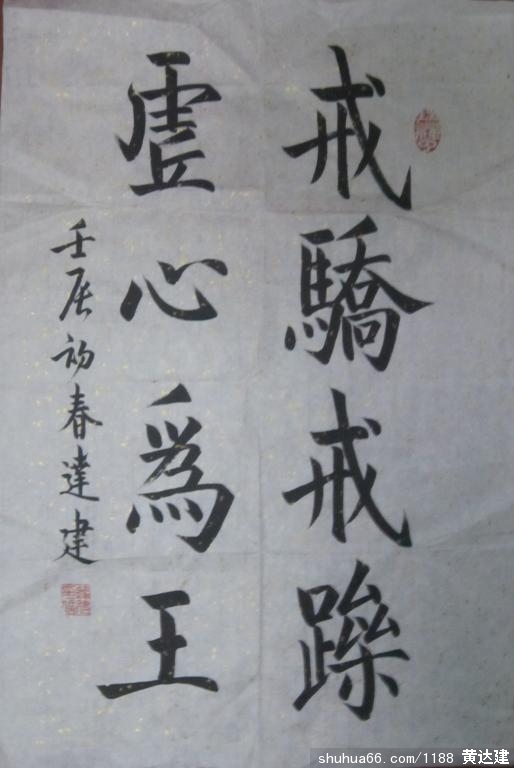 戒驕戒躁
虛心爲王
壬辰初春達建
shuhua66.com/1188 黄达建